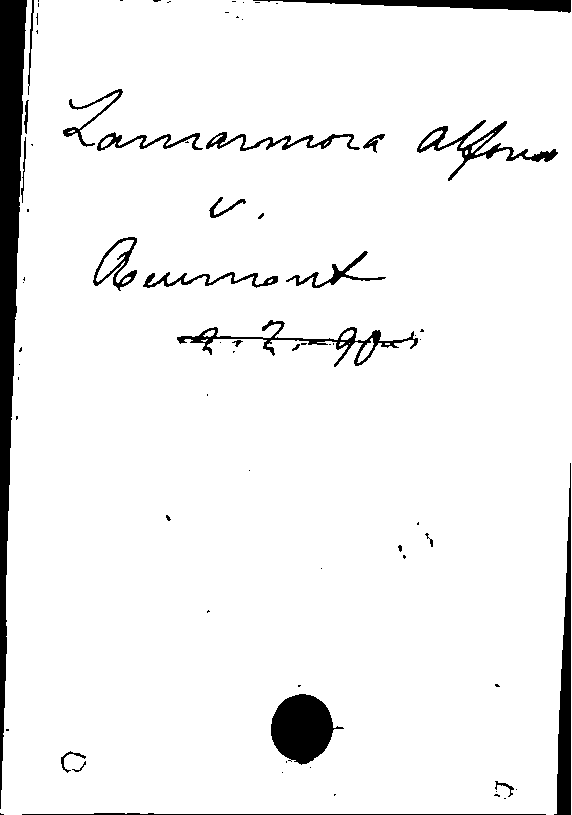 Lamarmora Alfonso
v.
Reumont
2. 2. 90.